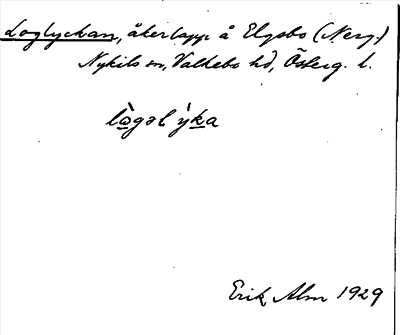 Loglyckan, åkerlapp å Elgsbo (Nerg.)
Nykils sn, Valkebo hd, Österg. l.
lògəl ỳka
Erik Alm 1929